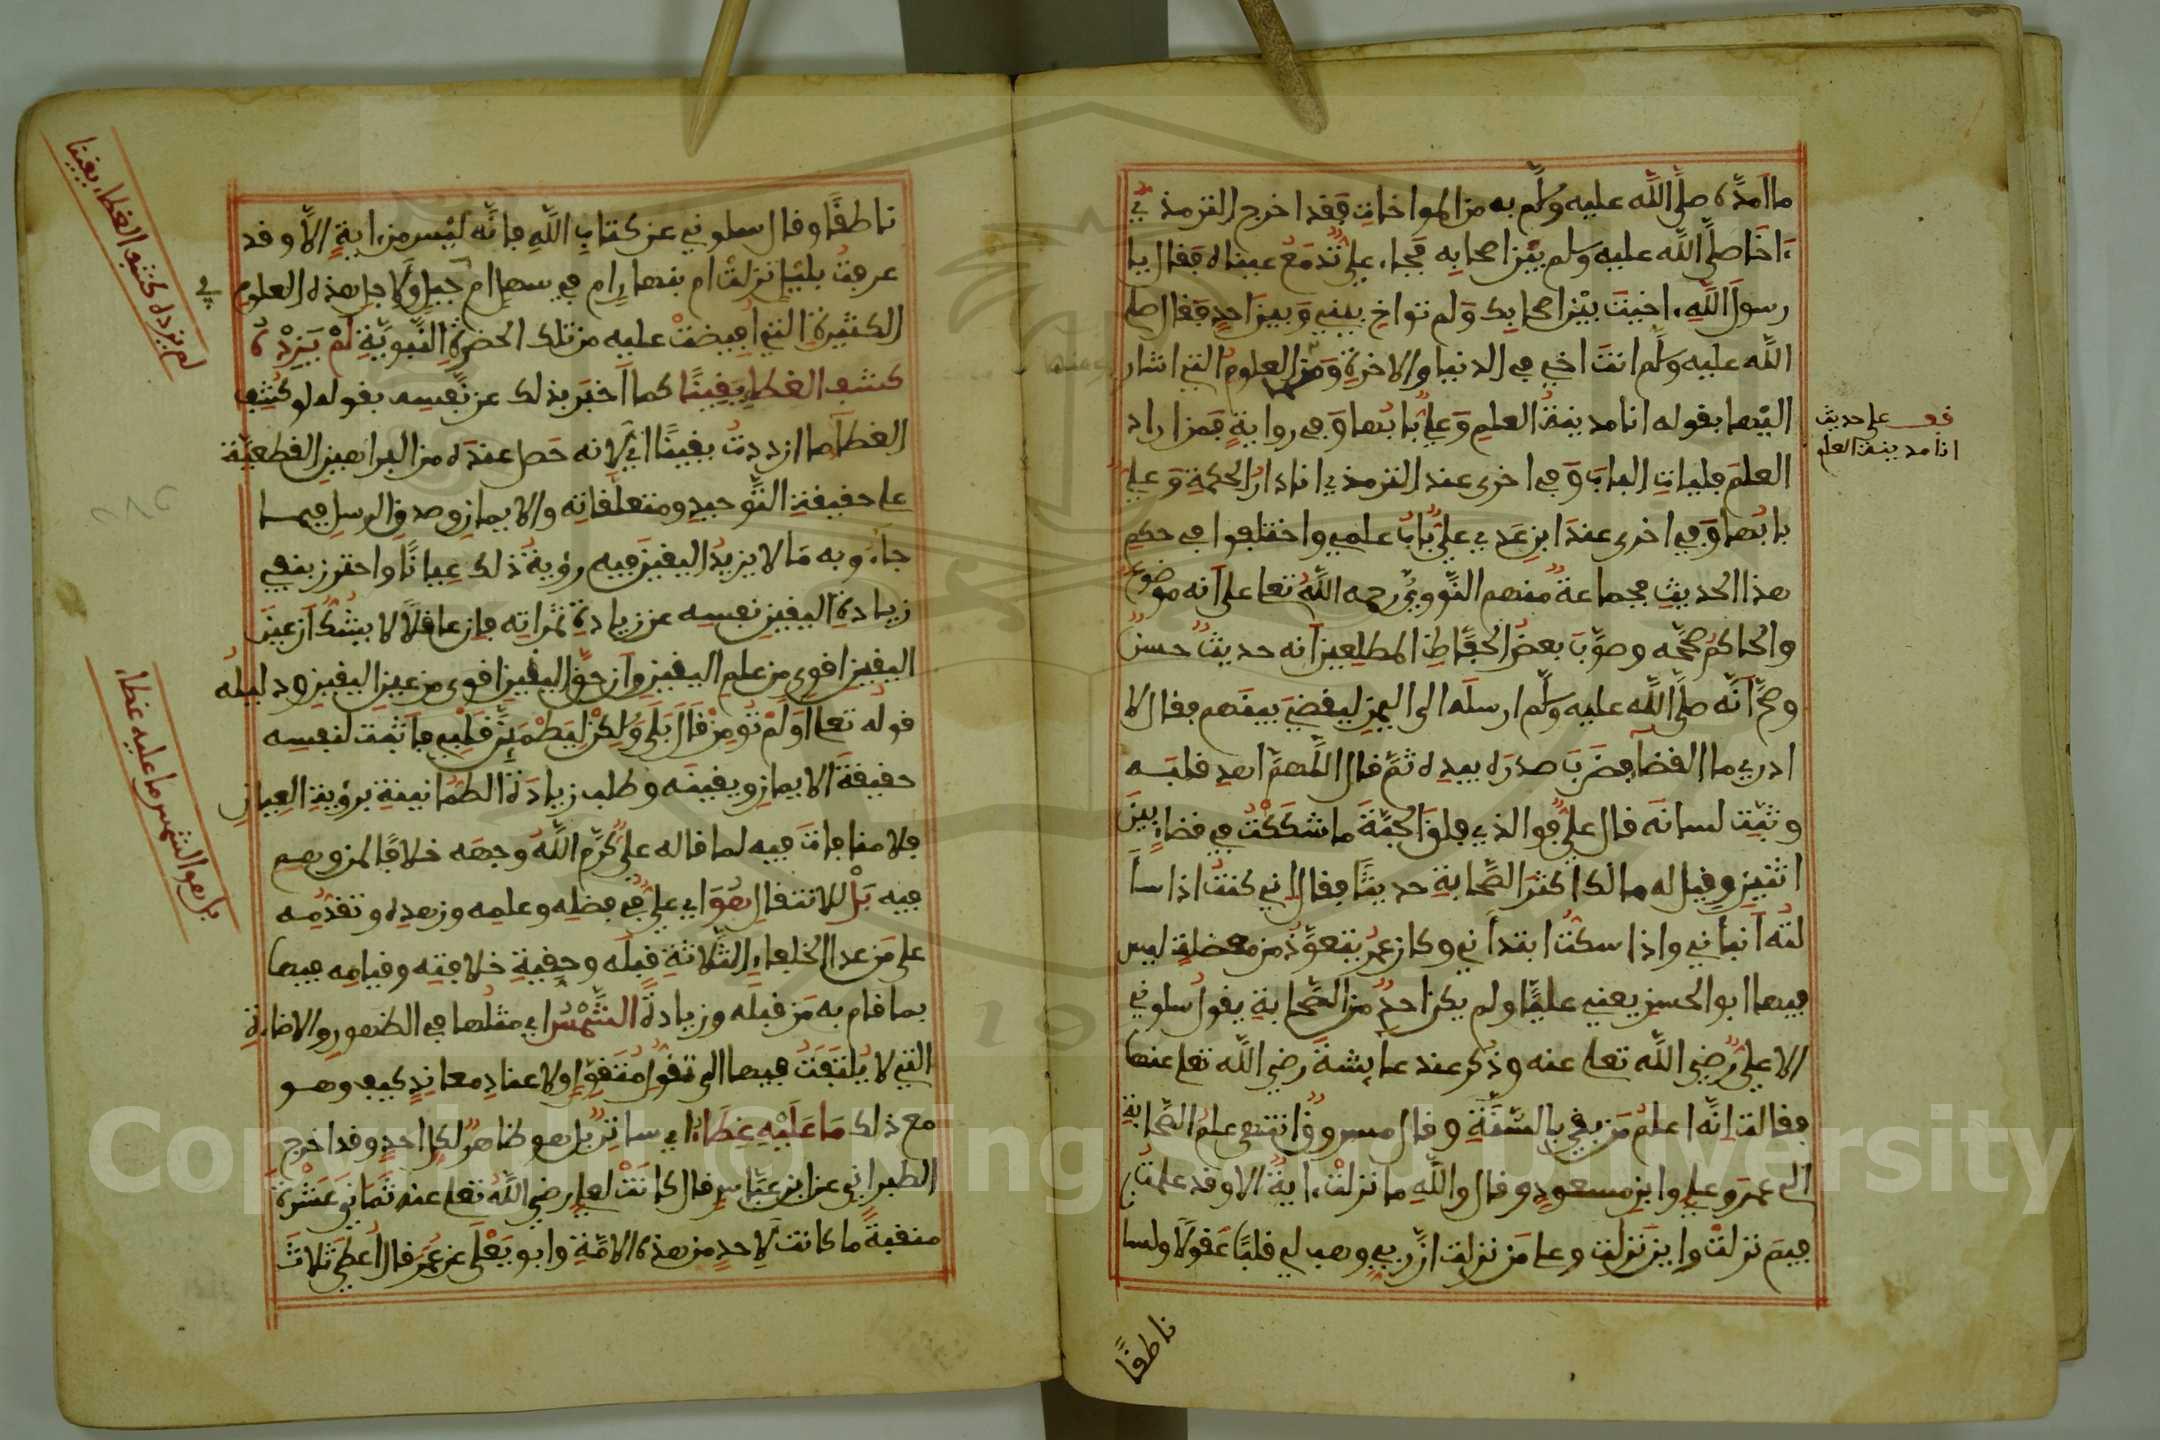 ما امده صلى الله عليه وسلم به من المواخات فقد اخرج الترمذي
ءاخا صلى الله عليه وسلم بين اصحابه فجاء علي تدمع عيناه فقال يا
رسول الله ءاخيت بين اصحابك ولم تواخ بيني وبين احد فقال صلى
الله عليه وسلم انت اخي في الدنيا والاخرة ومن العلوم التي اشار
اليها بقوله انا مدينة العلم وعلي بابها وفي رواية فمن اراد
العلم فليات الباب وفي اخرى عند الترمذي انا دار الحكمة وعلي
بابها وفي اخرى عند ابن عدي علي باب علمي واختلفوا في حكم
هذا الحديث فجماعة منهم النووي رحمه الله تعلى على انه موضوع
والحاكم صححه وصوب بعض الحفاظ المطلعين انه حديث حسن
وصح انه صلى الله عليه وسلم ارسله الى اليمن ليقضي بينهم فقال لا
ادري ما القضا فضرب صدره بيده ثم قال اللهم اهد قلبه
وثبت لسانه قال علي فوالذي فلق الحبة ما شككت في قضاء بين
اثنين وقيل له مالك اكثر الصحابة حديثا فقال اني كنت اذا سا
لته انباني واذا سكت ابتداني وكان عمر يتعوذ من معضلة ليس
فيها ابو الحسن يعني عليا ولم يكن احد من الصحابة يقول سلوني
الا علي رضي الله تعلى عنه وذكر عند عايشة رضي الله تعلى عنها
فقالت انه اعلم من بقي بالسنة وقال مسروق انتهى علم الصحابة
الى عمر وعلي وابن مسعود وقال والله ما نزلت ءاية الا وقد علمت
فيم نزلت واين نزلت وعلى من نزلت ان ربي وهب لي قلبا عقولا ولسا
ناطقا
قف على حديث
انا مدينة العلم
ناطقا وقال سلوني عن كتاب الله فانه ليس من ءاية الا وقد
عرفت بليل نزلت ام بنهار ام في سهل ام جبل ولاجل هذه العلوم
الكثيرة التي افيضت عليه من تلك الحضرة النبوية لم يزده
كشف الغطاء يقينا كما اخبر بذلك عن نفسه بقوله لو كشف
الغطا ما ازددت يقينا اي لانه حصل عنده من البراهين القطعية
على حقيقة التوحيد ومتعلقاته والايمان وصدق الرسل فيما
جاءوا به ما لا يزيد اليقين فيه رؤية ذلك عيانا واحترز بنفي
زيادة اليقين نفسه عن زيادة ثمراته فان عاقلا لا يشك ان عين
اليقين اقوى من علم اليقين وان حق اليقين اقوى من عين اليقين ودليله
قوله تعلى اولم تومن قال بلى ولكن ليطمئن قلبي فاثبت لنفسه
حقيقة الايمان ويقينه وطلب زيادة الطمانينة برؤية العيان
فلا منافات فيه لما قاله علي كرم الله وجهه خلافا لمن وهم
فيه بل للانتقال هو اي علي في فضله وعلمه وزهده وتقدمه
على من عدا الخلفاء الثلاثة قبله وحقية خلافته وقيامه فيها
بما قام به من قبله وزيادة الشمس اي مثلها في الظهور والاضاءة
التي لا يلتفت فيها الى تقول متقول ولا عناد معاند كيف وهو
مع ذلك ما عليه غطاء اي ساتر بل هو ظاهر لكل احد وقد اخرج
الطبراني عن ابن عباس قال كانت لعلي رضي الله تعلى عنه ثماني عشرة
منقبة ما كانت لاحد من هذه الامة وابو يعلى عن عمر قال اعطي ثلاث
لم يزده كشف الغطاء يقينا
بل هو الشمس ما عليه غطاء